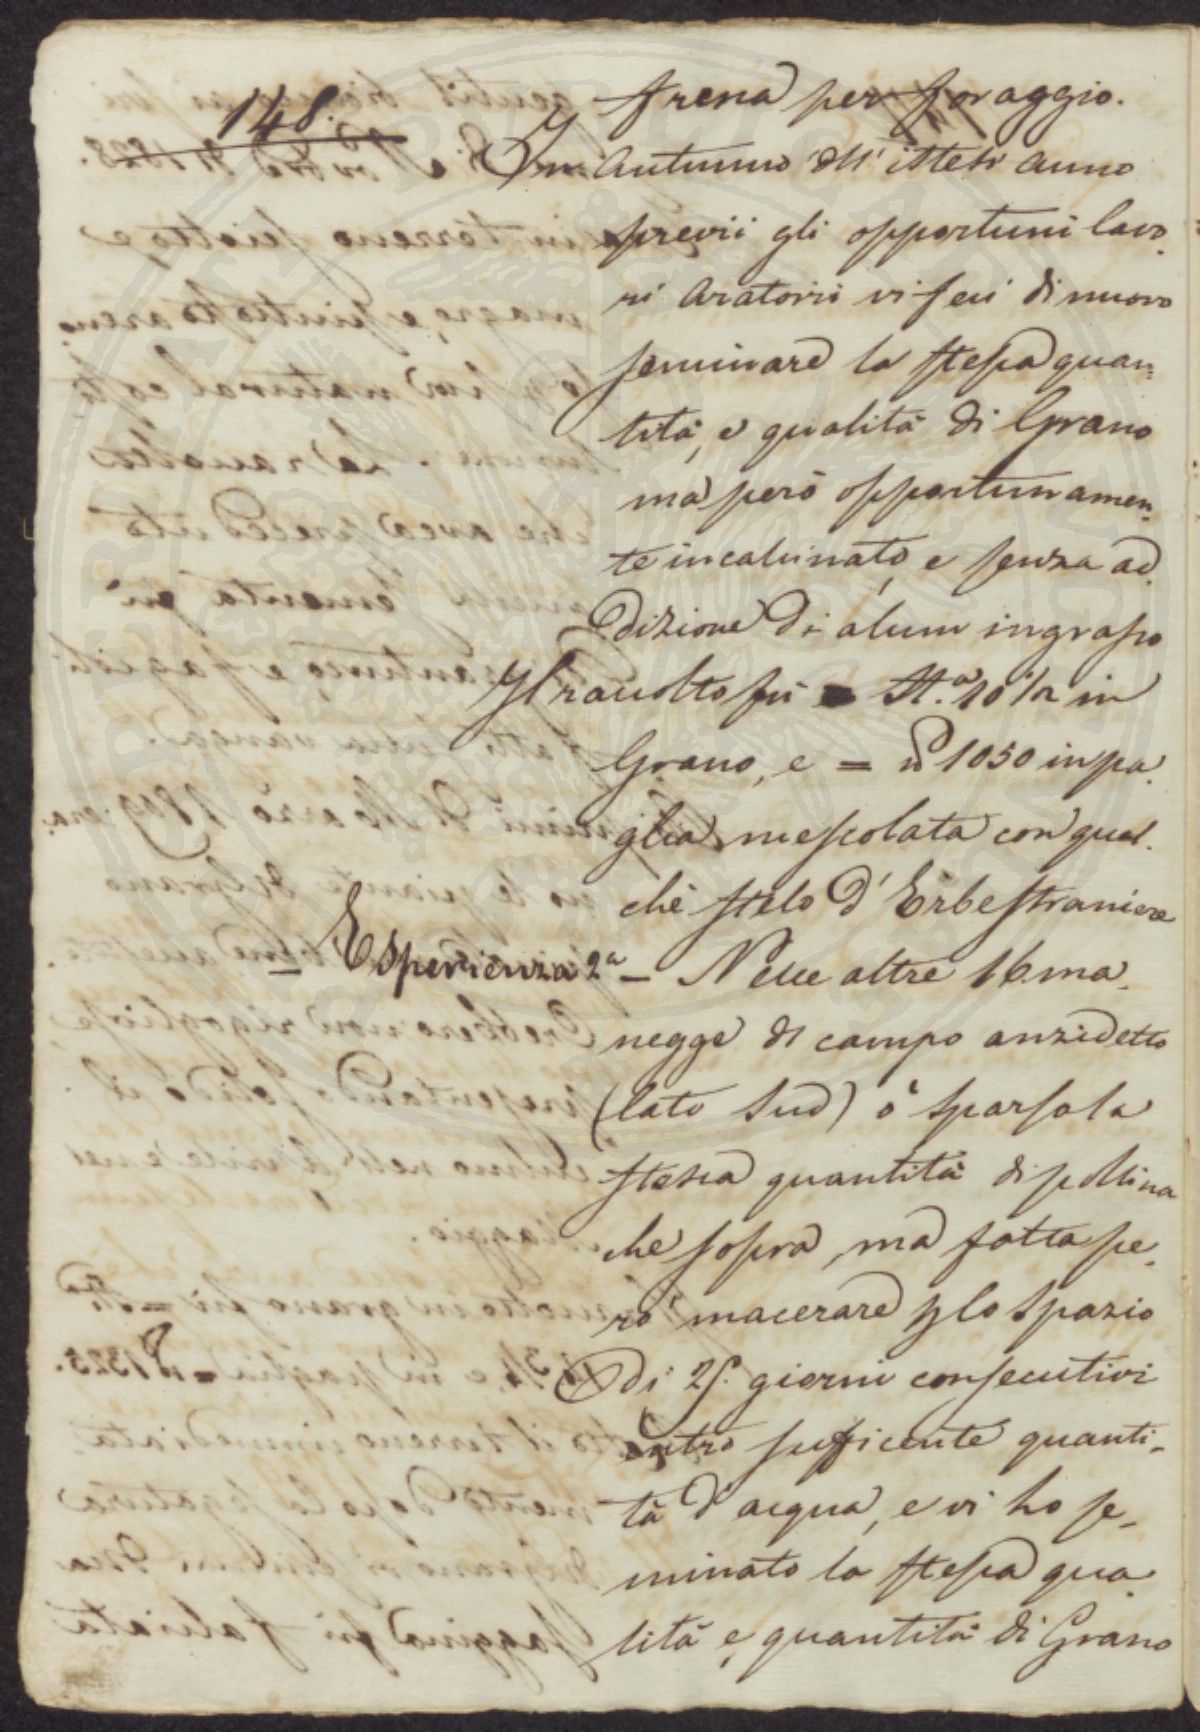 148.
Arena per foraggio.
In Autunno dell' istess' anno
previi gli opportuni lavo-
ri Aratorii vi feci di nuovo
seminare la stessa quan-
tità, e qualità di Grano
ma però opportunamen-
te incalcinato, e senza ad-
dizione di alcun ingrasso
Il raccolto fù = St.a 10 1/2 in
Grano, e = 1050 in pa-
glia mescolata con qual-
chè stelo d' Erbe straniere
- Esperienza 2a - Nelle altre 16 ma-
negge di campo anzidetto
(lato Sud) ò sparso la
stessa quantità di pollina
che sopra, ma fatta pe-
rò macerare lo spazio
di 25 giorni consecutivi
entro sufficente quanti-
tà d' acqua, e vi ho se-
minato la stessa qua-
lità e, quantità di Grano